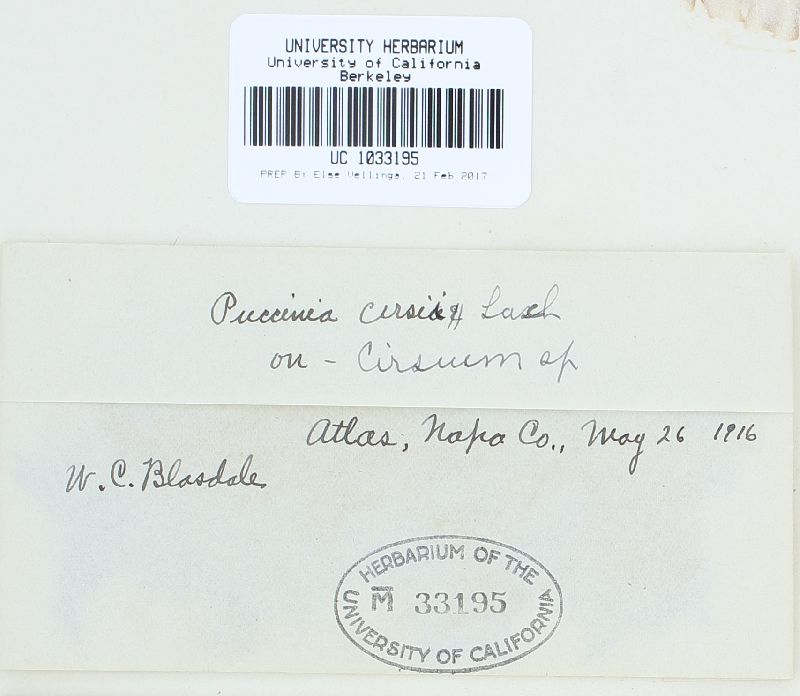 UNIVERSITY HERBARIUM
University of California
Berkeley
UC 1033195
PREP By Else Vellinga, 21 Feb 2017
Puccinia cirsii Lasch
on - Cirsium sp
Atlas, Napa Co., May 26 1916
W. C. Blasdale
HERBARIUM OF THE
M 33195
UNIVERSITY OF CALIFORNIA